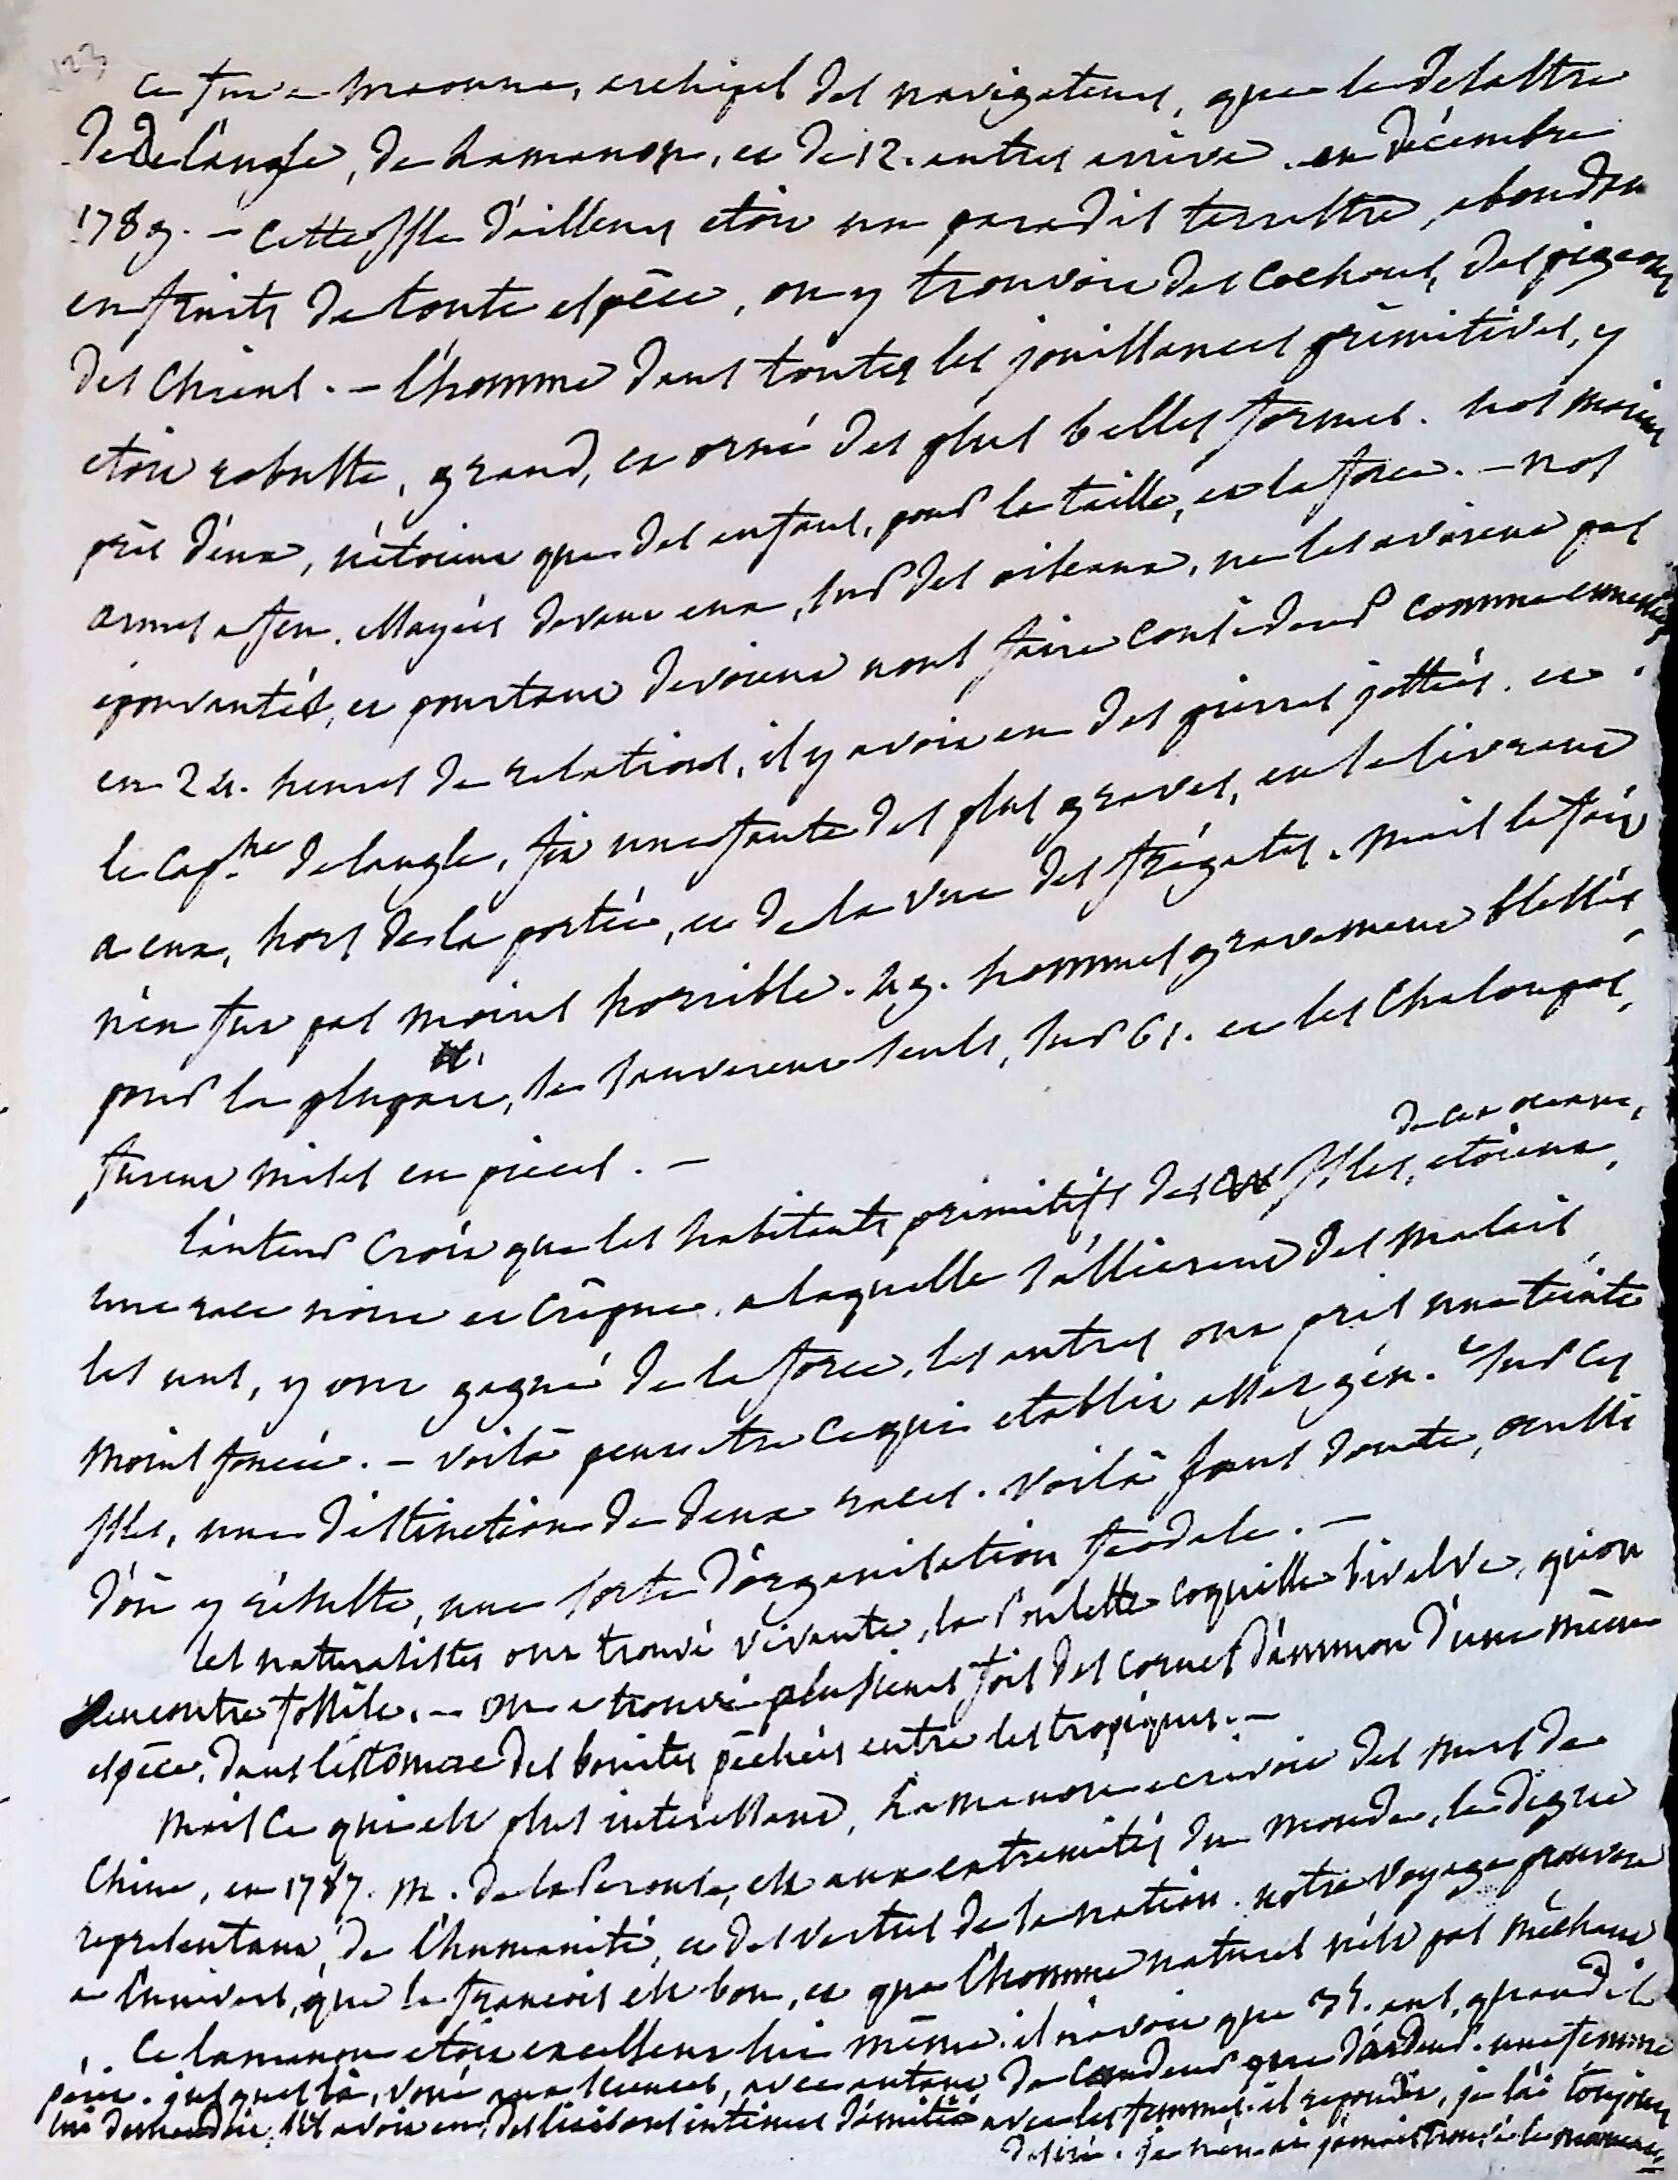 123
Ce fut a Maouna, archipel des navigateurs, que le desastre
de Delangle, de Lamanon, et de 12. autres arriva. en décembre
1787. – Cette Isle d'ailleurs etoit un paradis terrestre, abondan
en fruits de toute espèce, on y trouvoit des cochons, des pigeons
des chiens. – l'homme dans toutes les jouissances primitives, y
etoit robuste, grand, et orné des plus belles formes. nos marins
près d'eux, n'étoient que des enfans, pour la taille, et la force. – nos
armes a feu. essayées devant eux, sur des oiseaux, ne les avoient pas
épouvantés, et pourtant devoient nous faire considerer comme ennemis.
en 24. heures de relations, il y avoit eu des pierres jettées. et
le Cap.ne Delangle, fit une faute des plus graves, en se livrant
a eux, hors de la portée, et de la vue des frégates. mais le fait
n'en fut pas moins horrible. 49. hommes gravement blessés,
pour la plupart, se sauverent seuls, sur 61. et les chaloupes,
furent mises en pieces. –
l'auteur croit que les habitants primitifs des Isles, de cet ocean, etoient,
une race noire et crêpue, a laquelle s'allierent des malais
les uns, y ont gagné de la force, les autres ont pris une teinte
moins foncée. – voilà peut etre ce qui etablit assez gén.t sur ces
Isles, une distinction de deux races. voilà sans doute, aussi
d'où y résulte, une sorte d'organisation féodale. –
les naturalistes ont trouvé vivante, la Poulette coquille bivalve, qu'on
rencontre fossile. – on a trouvé plusieurs fois des cornes d'ammon d'une même
espèce, dans l'estomac des bonites pêchées entre les tropiques. –
mais ce qui est plus interessant, Lamanon ecrivoit des mers de
Chine, en 1787. M. de la Perouse, est aux extremités du monde, le digne
representant, de l'humanité, et des vertus de la nation. notre voyage prouvera
a l'univers, que le françois est bon, et que l'homme naturel n'est pas méchant
Ce Lamanon etoit excellent lui même. il n'avoit que 35. ans, quand il
périt. jusques là, voué aux sciences, avec autant de candeur que d'ardeur. une femme
lui demandoit, s'il avoit eu des liaisons intimes d'amitié avec les femmes. il repondit, je l'ai toujours
desiré. je n'en ai jamais trouvé le moment.